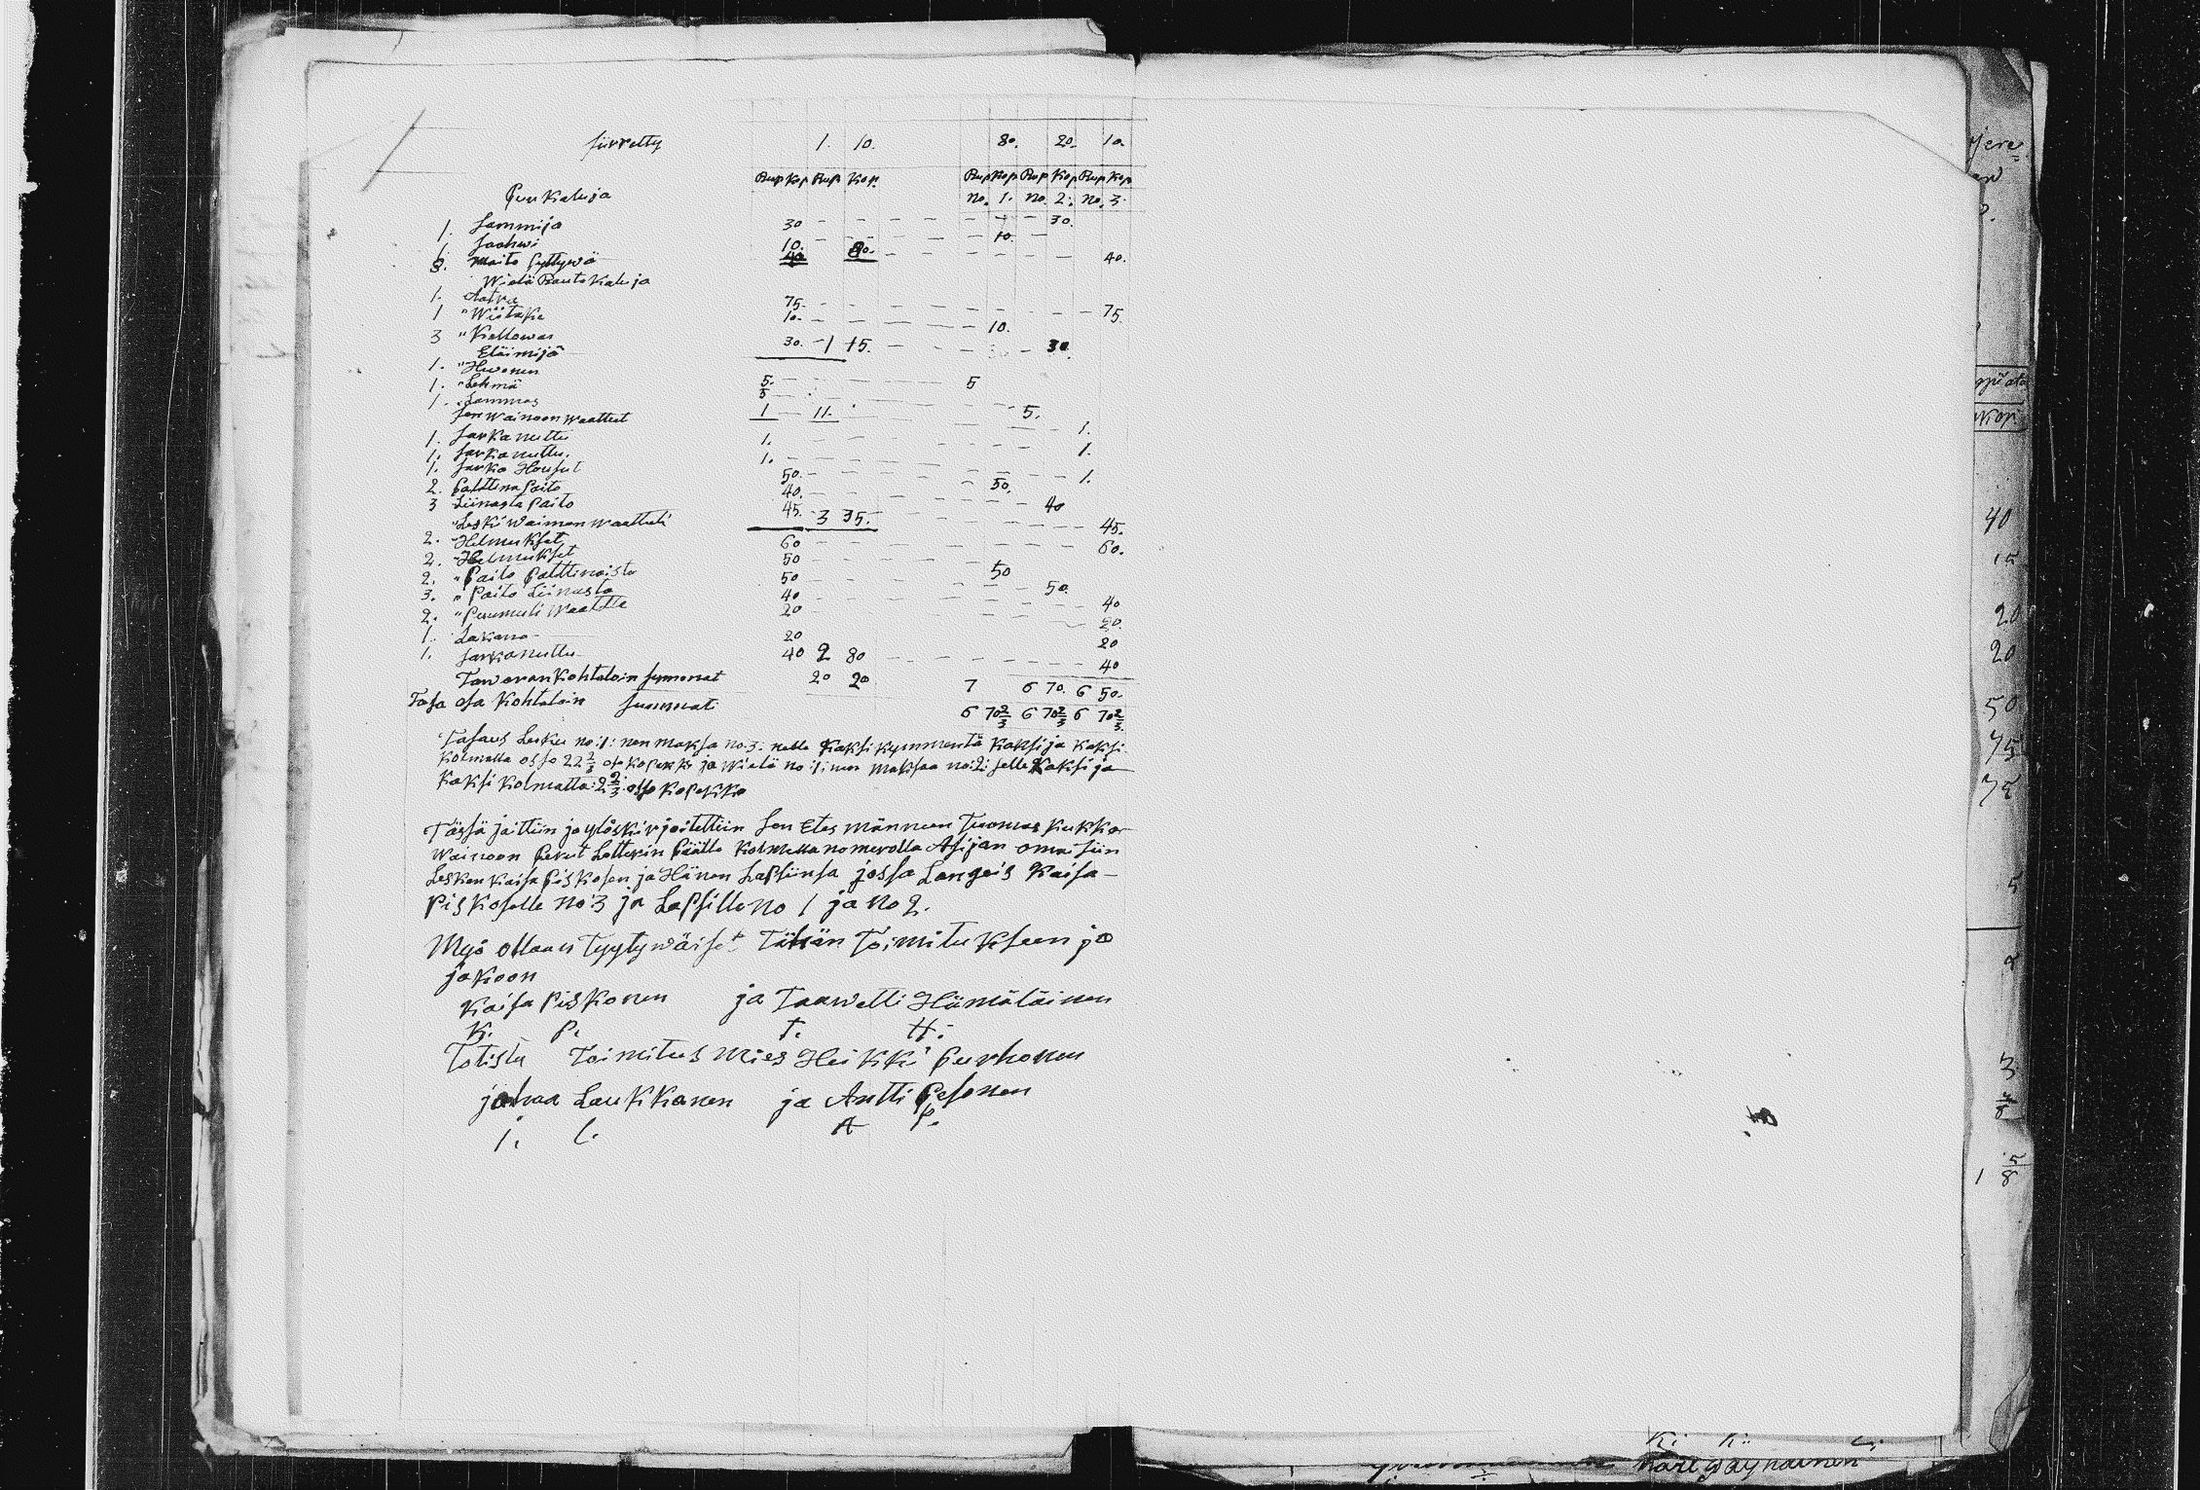 siirretty 1. 10. 80. 20. 10.
Rup Kop Rup Kop. Rup Kop Rup Kop Rup Kop
Puukaluja no. 1. no. 2. no. 3.
1. Sammijo 30 30.
1. Saahwi 10. 10.
8. Maito pyttywä 40 80. 40.
Wielä Rautokaluja
1. Aatra 75. 75.
1 " Wiitake 10. 10.
3 " Kellowas 30. 1 15. 30
Eläimijä
1. " Hewonen 5. 5
1. " Lehmä 5 5.
1. " Lammas 1 11. 1.
sen wainoon waatteet
1. Sarkanuttu 1. 1.
1. Sarkanuttu. 1. 1.
1. Sarko Housut 50. 50.
2. palttina paito 40. 40
3 Liinasta paito 45. 3 35. 45.
" Leski waimon waatteet
2. " Helmukset 60 60.
2. " Helmukset 50 50
2. " paito palttinoista 50 50.
3. " paito Liinasta 40 40
2. " puumuli waatte 20 20.
1. Lakana 20 20
1. Sarkanuttu 40 2 80 40
Tawaran Kohtaloin summat 20 20 7 6 70. 6 50.
Tasa osa Kohtaloin summat 6 70 2/3 6 70 2/3 6 70 2/3.
Tasaus Laskee no: 1: nen maksa no 3. nelle Kaksikymmentä kaksi ja kaksi
kolmatta osso 22 2/3 oso kopekko ja wielä no: 1: nen maksaa no: 2: selle Kaksi ja
kaksi kolmatta: 2 2/3: osso kopekko
Tässä jaittiin ja ylöskirjoitettiin sen Etes männeen Tuomas Kukkos
wainoon perut Lotterin päälle kolmella nomerolla Asijan omaisiin
Lesken Kaisa Piskosen ja Hänen Lapsiinsa jossa Langeis Kaisa
Piskoselle no 3 ja Lapsille no 1 ja no 2.
Myö ollaan Tyytywäiset Tähän Toimitukseen ja
jakoon
Kaisa Piskonen ja Taawetti Hämäläinen
K. P. T. H:
Totista Toimitus mies Heikki Purhonen
johaa Laukkanen ja Antti Pesonen
j. L. A P.
40
15
20
20
50
75
75
5